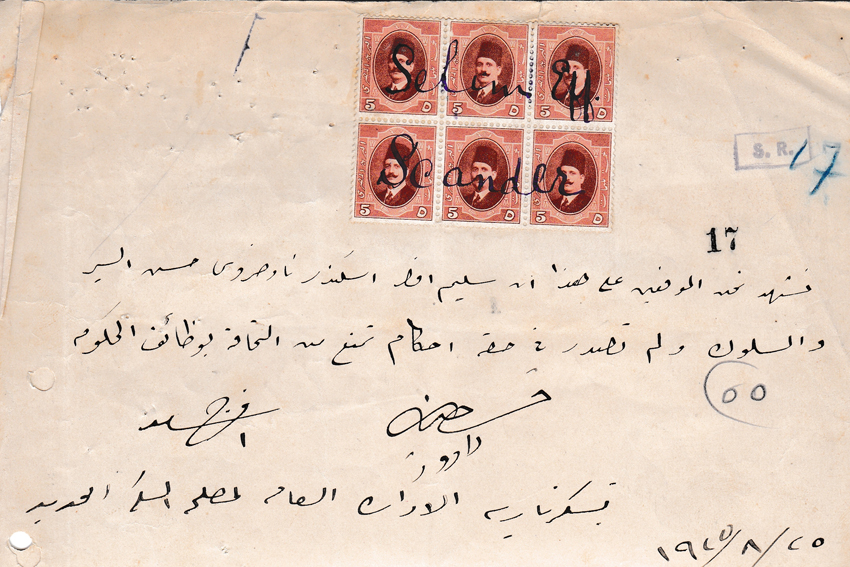 Selim Eff.
5 ٥ 5 ٥ 5 ٥
Scander
5 ٥ 5 ٥ 5 ٥
S. R. 17
17
نشهد نحن الموقعين على هذا ان سليم افندى اسكندر تاوضروس حسن السير
والسلوك ولم تصدر فى حقه احكام تمنع من التحاقة بوظائف الحكومه
٥٥
بسكرتارية الادارة العامة لمصلحة السكة الحديد
٢٥/٨/١٩٢٥